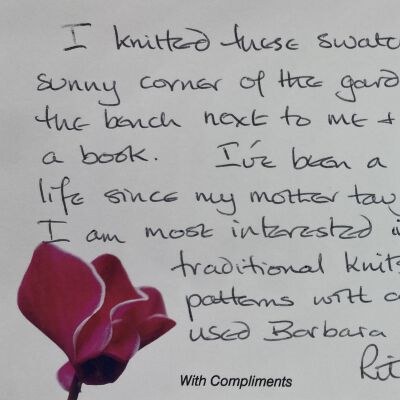 I knitted these swatc
sunny corner of the gard
the bench next to me +
a book. I've been a
life since my mother tau
I am most interested i
traditional knit
patterns with a
used Barbara
Rit
With Compliments